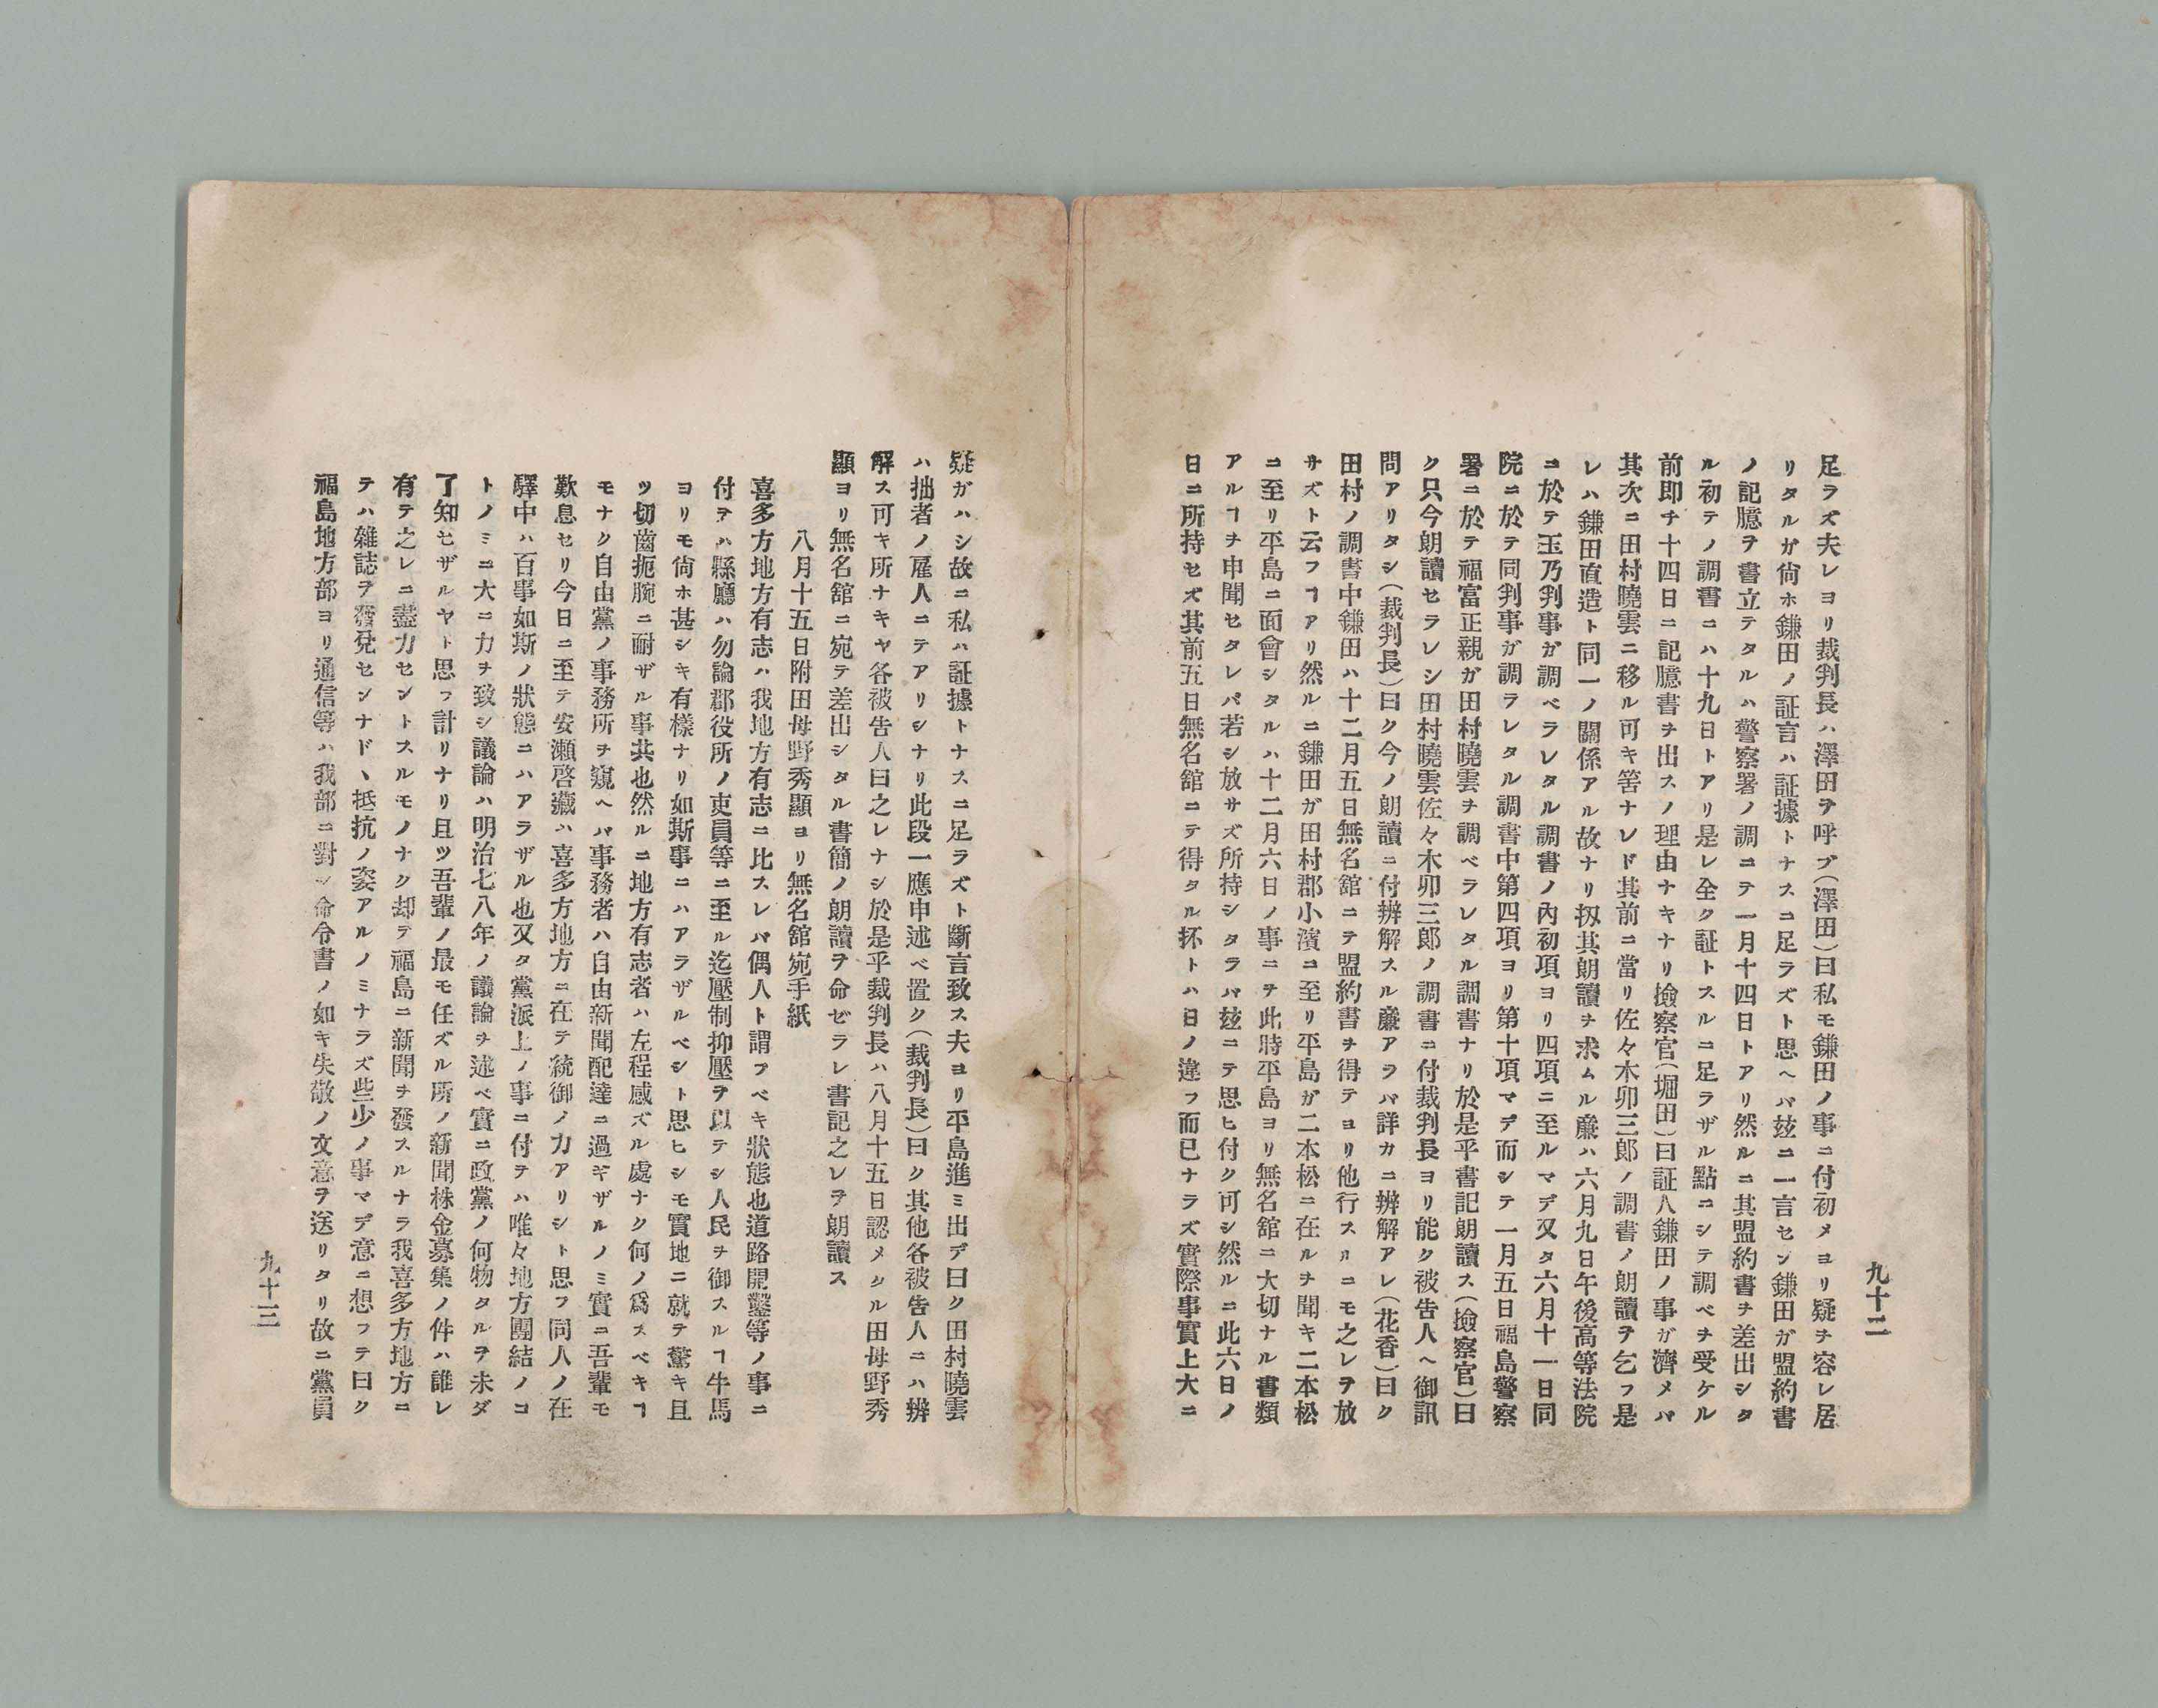 九十二
足ラズ夫レヨリ裁判長ハ澤田ヲ呼ブ(澤田)曰私モ鎌田ノ事ニ付初メヨリ疑ヲ容レ居
リタルガ尙ホ鎌田ノ証言ハ証據トナスニ足ラズト思ヘバ玆ニ一言セン鎌田ガ盟約書
ノ記臆ヲ書立テタルハ警察署ノ調ニテ一月十四日トアリ然ルニ其盟約書ヲ差出シタ
ル初テノ調書ニハ十九日トアリ是レ全ク証トスルニ足ラザル點ニシテ調ベヲ受ケル
前即チ十四日ニ記臆書ヲ出スノ理由ナキナリ撿察官(堀田)曰証人鎌田ノ事ガ濟メバ
其次ニ田村曉雲ニ移ル可キ筈ナレド其前ニ當リ佐々木卯三郎ノ調書ノ朗讀ヲ乞フ是
レハ鎌田直造ト同一ノ關係アル故ナリ扨其朗讀ヲ求ムル廉ハ六月九日午後高等法院
ニ於テ玉乃判事ガ調ベラレタル調書ノ內初項ヨリ四項ニ至ルマデ又タ六月十一日同
院ニ於テ同判事ガ調ラレタル調書中第四項ヨリ第十項マデ而シテ一月五日福島警察
署ニ於テ福富正親ガ田村曉雲ヲ調ベラレタル調書ナリ於是乎書記朗讀ス(撿察官)曰
ク只今朗讀セラレシ田村曉雲佐々木卯三郎ノ調書ニ付裁判長ヨリ能ク被告人ヘ御訊
問アリタシ(裁判長)曰ク今ノ朗讀ニ付辨解スル廉アラバ詳カニ辨解アレ(花香)曰ク
田村ノ調書中鎌田ハ十二月五日無名舘ニテ盟約書ヲ得テヨリ他行スルニモ之レヲ放
サズト云フヿアリ然ルニ鎌田ガ田村郡小濱ニ至リ平島ガ二本松ニ在ルヲ聞キ二本松
ニ至リ平島ニ面會シタルハ十二月六日ノ事ニテ此時平島ヨリ無名舘ニ大切ナル書類
アルヿヲ申聞セタレバ若シ放サズ所持シタラバ玆ニテ思ヒ付ク可シ然ルニ此六日ノ
日ニ所持セズ其前五日無名舘ニテ得タル抔トハ日ノ違フ而已ナラズ實際事實上大ニ
疑ガハシ故ニ私ハ証據トナスニ足ラズト斷言致ス夫ヨリ平島進ミ出デ曰ク田村曉雲
ハ拙者ノ雇人ニテアリシナリ此段一應申述ベ置ク(裁判長)曰ク其他各被告人ニハ辨
解ス可キ所ナキヤ各被告人曰之レナシ於是乎裁判長ハ八月十五日認メシル田母野秀
顯ヨリ無名舘ニ宛テ差出シタル書簡ノ朗讀ヲ命ゼラレ書記之レヲ朗讀ス
八月十五日附田母野秀顯ヨリ無名舘宛手紙
喜多方地方有志ハ我地方有志ニ比スレバ偶人ト謂フベキ狀態也道路開鑿等ノ事ニ
付テハ縣廳ハ勿論郡役所ノ吏員等ニ至ル迄壓制抑壓ヲ以テシ人民ヲ御スルヿ牛馬
ヨリモ尙ホ甚シキ有樣ナリ如斯事ニハアラザルベシト思ヒシモ實地ニ就テ驚キ且
ツ切齒扼腕ニ耐ザル事共也然ルニ地方有志者ハ左程感ズル處ナク何ノ爲スベキヿ
モナク自由黨ノ事務所ヲ窺ヘバ事務者ハ自由新聞配達ニ過ギザルノミ實ニ吾輩モ
歎息セリ今日ニ至テ安瀨啓藏ハ喜多方地方ニ在テ統御ノ力アリシト思フ同人ノ在
驛中ハ百事如斯ノ狀態ニハアラザル也又タ黨派上ノ事ニ付テハ唯々地方團結ノコ
トノミニ大ニ力ヲ致シ議論ハ明治七八年ノ議論ヲ述ベ實ニ政黨ノ何物タルヲ未ダ
了知セザルヤト思フ計リナリ且ツ吾輩ノ最モ任ズル所ノ新聞株金募集ノ件ハ誰レ
有テ之レニ盡力セントスルモノナク却テ福島ニ新聞ヲ發スルナラ我喜多方地方ニ
テハ雜誌ヲ發兌センナド丶抵抗ノ姿アルノミナラズ些少ノ事マデ意ニ想フテ曰ク
福島地方部ヨリ通信等ハ我部ニ對シ命令書ノ如キ失敬ノ文意ヲ送リタリ故ニ黨員
九十三